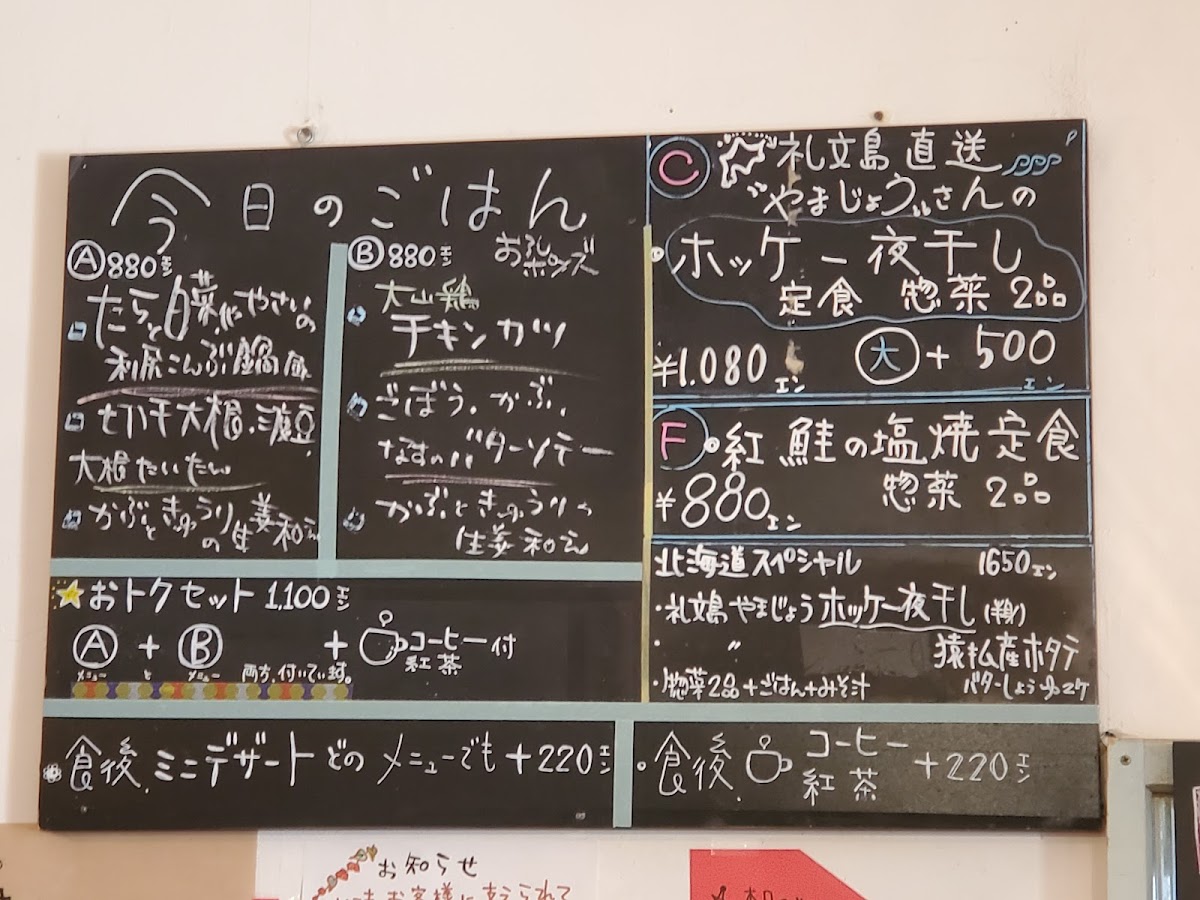 今日のごはん
Ⓐ 880エン
たらと白菜、にやさいの
利尻こんぶ鍋風
切干大根・
大根たいたん
かぶときゅうりの生姜和え
Ⓑ 880エン
おろしポンズ
大山鶏
チキンカツ
ごぼう、かぶ、
なすのバターソテー
かぶときゅうりの
生姜和え
Ⓒ 礼文島直送
"やまじょう"さんの
ホッケ一夜干し
定食 惣菜2品
¥1.080エン 大+500エン
Ⓕ 紅鮭の塩焼定食
¥880エン 惣菜2品
北海道スペシャル 1650エン
・礼文島やまじょうホッケ一夜干し(半身)
・ 〃 猿払産ホタテ
バターしょうゆ
・惣菜2品+ごはん+みそ汁
おトクセット1,100エン
Ⓐ + Ⓑ + コーヒー 紅茶 付
メニュー と メニュー 両方、付いています。
食後、ミニデザート どのメニューでも+220エン
食後、コーヒー 紅茶 +220エン
お知らせ
お客様に支えられて